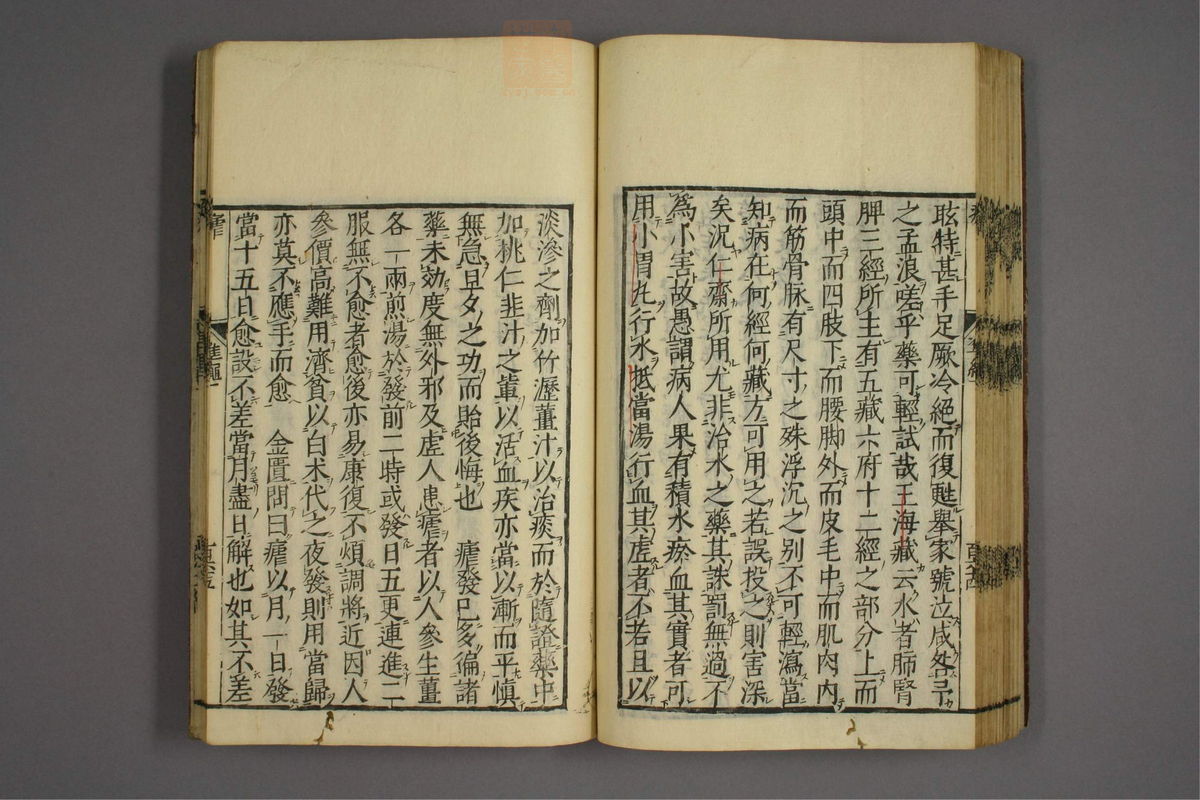 眩特甚手足厥冷絕而復甦舉家號泣咸咎予
之孟浪嗟乎藥可輕試哉王海藏云水者肺腎
脾三經所主有五藏六府十二經之部分上而
頭中而四肢下而腰脚外而皮毛中而肌肉內
而筋骨脉有尺寸之殊浮沉之別不可輕瀉當
知病在何經何藏方可用之若誤投之則害深
矣況仁齋所用尤非治水之藥其誅罰無過不
為小害故愚謂病人果有積水瘀血其實者可
用小胃丸行水抵當湯行血其虛者不若且以
淡滲之劑加竹瀝薑汁以治痰而於隨證藥中
加桃仁韭汁之輩以活血疾亦當以漸而平慎
無急旦夕之功而貽後悔也　瘧發已多偏諸
藥未効度無外邪及虛人患瘧者以人參生薑
各一兩煎湯於發前二時或發日五更連進二
服無不愈者愈後亦易康復不煩調將近因人
參價高難用濟貧以白术代之夜發則用當歸
亦莫不應手而愈　金匱問曰瘧以月一日發
當十五日愈設不差當月盡日解也如其不差
瘧